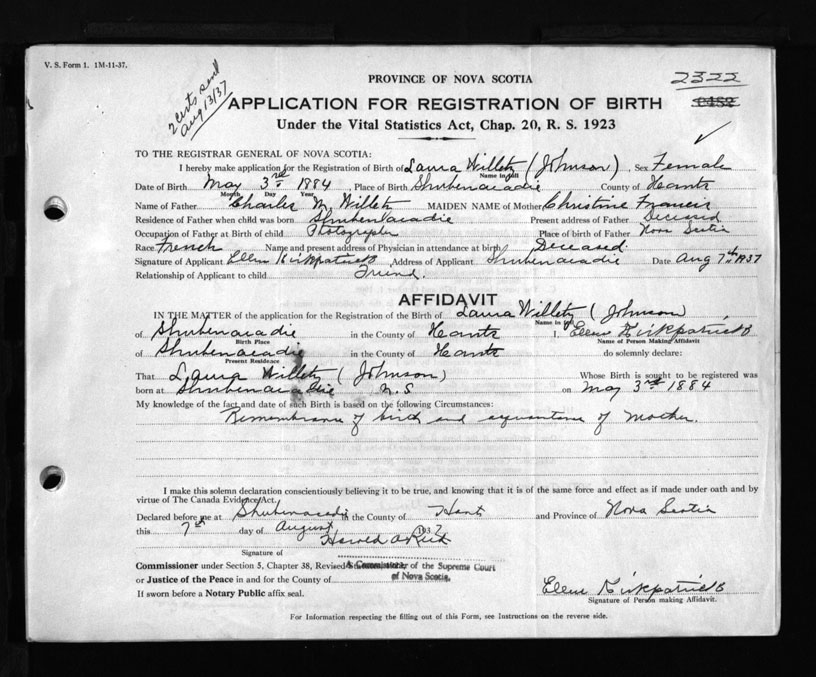 V. S. Form 1. 1M-11-37.
2 certs send
Aug 13/37
PROVINCE OF NOVA SCOTIA
2322
APPLICATION FOR REGISTRATION OF BIRTH
Under the Vital Statistics Act, Chap. 20, R. S. 1923
TO THE REGISTRAR GENERAL OF NOVA SCOTIA:
I hereby make application for the Registration of Birth of Laura Willets (Johnson), Sex Female
Name in full
Date of Birth May 3rd 1884, Place of Birth Shubenacadie County of Hants
Month Day Year
Name of Father Charles M. Willets MAIDEN NAME of Mother Christine Francis
Residence of Father when child was born Shubenacadie Present address of Father Deceased
Occupation of Father at Birth of child Photographer Place of birth of Father Nova Scotia
Race French Name and present address of Physician in attendance at birth Deceased.
Signature of Applicant Ellen Kirkpatrick Address of Applicant Shubenacadie Date Aug 7th 1937
Relationship of Applicant to child Friend.
AFFIDAVIT
IN THE MATTER of the application for the Registration of the Birth of Laura Willets (Johnson)
Name in full
of Shubenacadie in the County of Hants I, Ellen Kirkpatrick
Birth Place Name of Person Making Affidavit
of Shubenacadie in the County of Hants do solemnly declare:
Present Residence
That Laura Willets (Johnson) Whose Birth is sought to be registered was
born at Shubenacadie N.S on May 3rd 1884
My knowledge of the fact and date of such Birth is based on the following Circumstances:
Remembrance of birth and of Mother.
I make this solemn declaration conscientiously believing it to be true, and knowing that it is of the same force and effect as if made under oath and by
virtue of The Canada Evidence Act.
Declared before me at Shubenacadie in the County of Hants and Province of Nova Scotia
this 7th day of August 1937
Harold A Reid
Signature of
Commissioner under Section 5, Chapter 38, Revised A Commissioner of the Supreme Court
or Justice of the Peace in and for the County of of Nova Scotia.
If sworn before a Notary Public affix seal.
Ellen Kirkpatrick
Signature of Person making Affidavit.
For Information respecting the filling out of this Form, see Instructions on the reverse side.